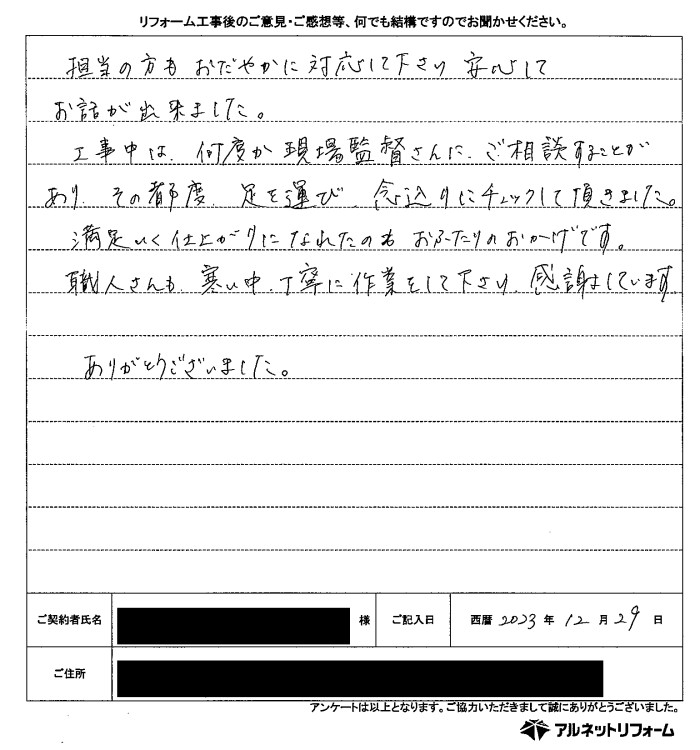 リフォーム工事後のご意見・ご感想等、何でも結構ですのでお聞かせください。
担当の方も おだやかに対応して下さり 安心して
お話が出来ました。
工事中は、何度か現場監督さんに、ご相談することが
あり、その都度、足を運び、念込りにチェックして頂きました。
満足いく仕上がりになれたのも おふたりのおかげです。
職人さんも、寒い中、丁寧に作業をして下さり、感謝しています。
ありがとうございました。
ご契約者氏名 様 ご記入日 西暦 2023 年 12 月 29 日
ご住所
アンケートは以上となります。ご協力いただきまして誠にありがとうございました。
アルネットリフォーム